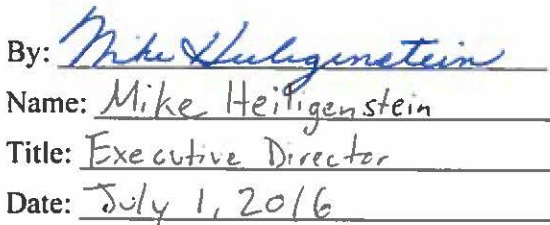 By: Mike Heiligenstein
Name: Mike Heiligenstein
Title: Executive Director
Date: July 1, 2016